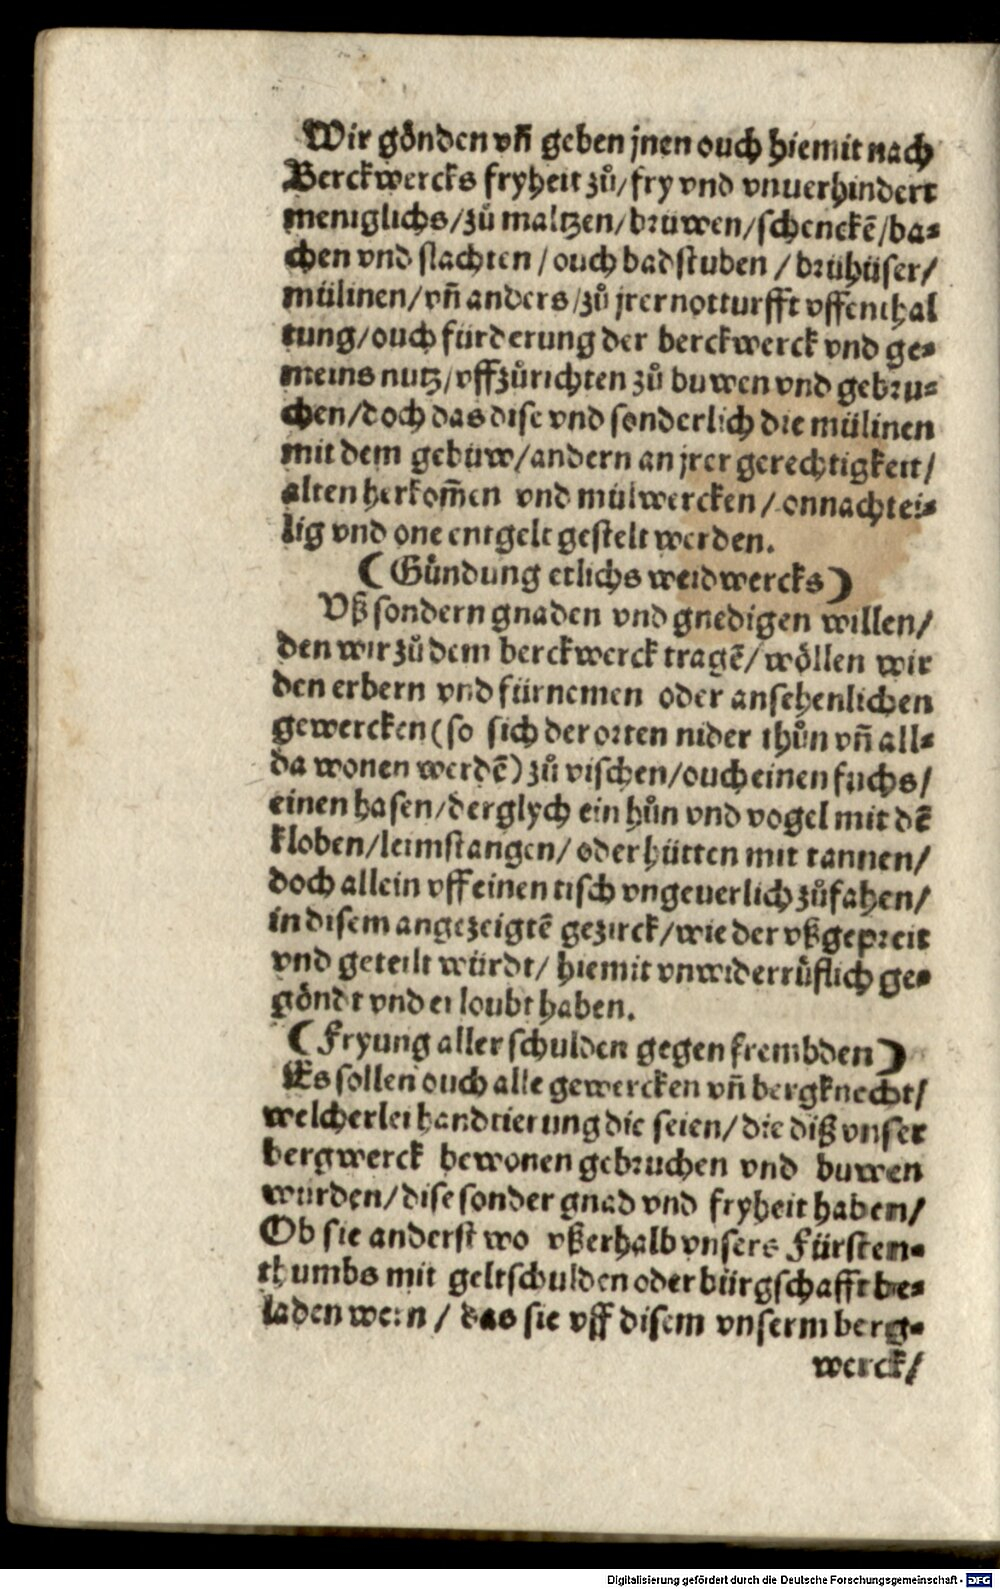 Wir gönden vñ geben jnen ouch hiemit nach
Berckwercks fryheit zů/fry vnd vnuerhindert
meniglichs/zů maltzen/brüwen/schenckē/ba⸗
chen vnd slachten/ouch badstuben/brühüser/
mülinen/vñ anders/zů jrer notturfft vffenthal
tung/ouch fürderung der berckwerck vnd ge⸗
meins nutz/vffzůrichten zů buwen vnd gebru⸗
chen/doch das dise vnd sonderlich die mülinen
mit dem gebüw/andern an jrer gerechtigkeit/
alten herkom̄en vnd mülwercken/onnachtei⸗
lig vnd one entgelt gestelt werden.
(Gündung etlichs weidwercks)
Vß sondern gnaden vnd gnedigen willen/
den wir zů dem berckwerck tragē/wöllen wir
den erbern vnd fürnemen oder ansehenlichen
gewercken(so sich der orten nider thůn vñ all⸗
da wonen werdē)zů vischen/ouch einen fuchs/
einen hasen/derglych ein hůn vnd vogel mit dē
kloben/leimstangen/oder hütten mit tannen/
doch allein vff einen tisch vngeuerlich zůfahen/
in disem angezeigtē gezirck/wie der vßgepreit
vnd geteilt würdt/hiemit vnwiderrůflich ge⸗
göndt vnd erloubt haben.
(Fryung aller schulden gegen frembden)
Es sollen ouch alle gewercken vñ bergknecht/
welcherlei handtierung die seien/die diß vnser
bergwerck bewonen gebruchen vnd buwen
wurden/dise sonder gnad vnd fryheit haben/
Ob sie anderst wo vßerhalb vnsers Fürsten⸗
thumbs mit geltschulden oder bürgschafft be⸗
laden wern/das sie vff disem vnserm berg⸗
werck/
Digitalisierung gefördert durch die Deutsche Forschungsgemeinschaft - DFG